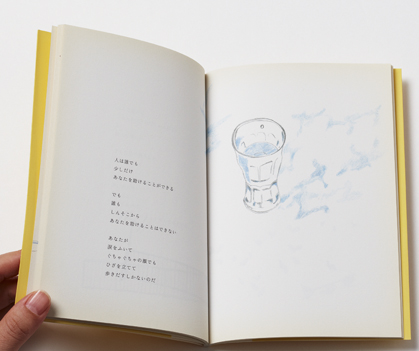 人は誰でも
少しだけ
あなたを助けることができる
でも
誰も
しんそこから
あなたを助けることはできない
あなたが、
涙をふいて、
ぐちゃぐちゃの顔でも
ひざを立てて
歩きだすしかないのだ